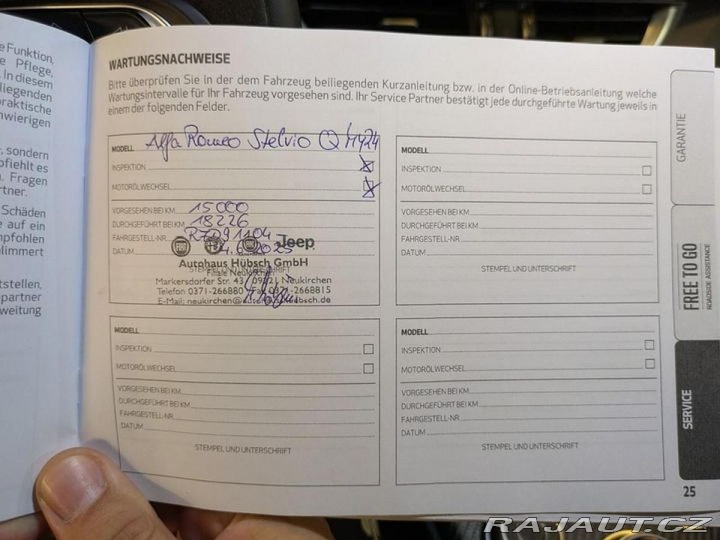 e Funktion,
e Pflege,
. In diesem
liegenden
praktische
hwierigen
, sondern
pfiehlt es
. Fragen
rtner.
Schäden
e auf ein
mpfohlen
limmert
tstellen,
partner
weitung
WARTUNGSNACHWEISE
Bitte überprüfen Sie in der dem Fahrzeug beiliegenden Kurzanleitung bzw. in der Online-Betriebsanleitung welche
Wartungsintervalle für Ihr Fahrzeug vorgesehen sind. Ihr Service Partner bestätigt jede durchgeführte Wartung jeweils in
einem der folgenden Felder.
MODELL Alfa Romeo Stelvio Q MY24
INSPEKTION X
MOTORÖLWECHSEL X
VORGESEHEN BEI KM 15000
DURCHGEFÜHRT BEI KM 18226
FAHRGESTELL-NR R7D91104
DATUM 4.6.2025
Jeep
STEMPEL UND UNTERSCHRIFT
Autohaus Hübsch GmbH
Filiale Neukirchen
Markersdorfer Str. 43, 09221 Neukirchen
Telefon 0371-266880 Fax 0371-2668815
E-Mail: neukirchen@
MODELL
INSPEKTION
MOTORÖLWECHSEL
VORGESEHEN BEI KM
DURCHGEFÜHRT BEI KM
FAHRGESTELL-NR
DATUM
STEMPEL UND UNTERSCHRIFT
MODELL
INSPEKTION
MOTORÖLWECHSEL
VORGESEHEN BEI KM
DURCHGEFÜHRT BEI KM
FAHRGESTELL-NR
DATUM
STEMPEL UND UNTERSCHRIFT
MODELL
INSPEKTION
MOTORÖLWECHSEL
VORGESEHEN BEI KM
DURCHGEFÜHRT BEI KM
FAHRGESTELL-NR
DATUM
STEMPEL UND UNTERSCHRIFT
GARANTIE
FREE TO GO
ROADSIDE ASSISTANCE
SERVICE
25
RAJAUT.CZ